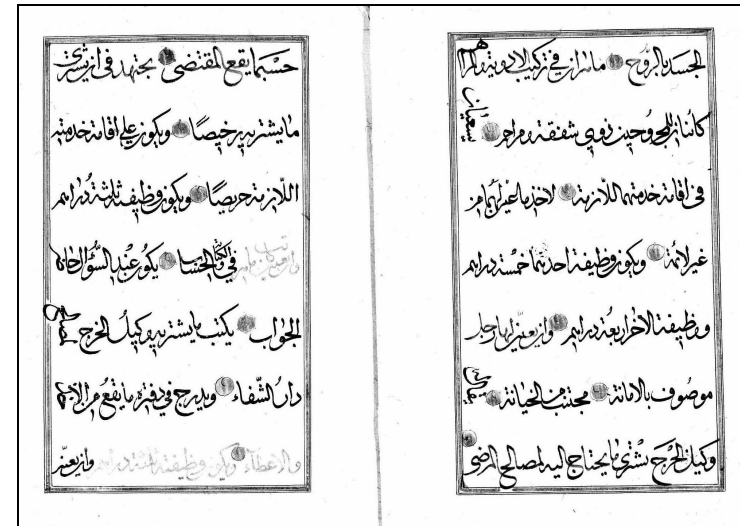 الجسد بالروح ماهران في تركيب الادوية والمراهم
كائنان للمجروحين ذوي شفقة ومراحم يسعيان
في اقامة خدمتهما اللازمة لاخذ ما عين لهما من
غير لائمة ويكون وظيفة احدهما خمسة دراهم
ووظيفة الاخر اربعة دراهم وان يعين لها رجل
موصوف بالامانة مجتنب من الخيانة
وكيل الخرج يشترى ما يحتاج اليه لمصالح المرضى
حسبما يقع المقتضى يجتهد في ان يشترى
ما يشتريه رخيصا ويكون على اقامة خدمته
اللازمة حريصا ويكون وظيفة ثلثة دراهم
وان يعين كاتب في الحساب يكون عند السؤال
الجواب يكتب ما يشتريه وكيل الخرج
دار الشفاء ويدرج في دفتره ما يقع من
والاعطاء ويكون وظيفة دراهم وان يعين